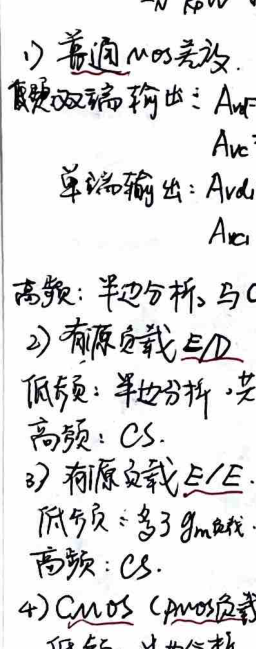 1) 普通MOS差放.
双端输出: Avd=
Avc=
单端输出: Avd1
Avc1
高频: 半边分析,与C
2) 有源负载E/D
低频: 半边分析,共
高频: CS.
3) 有源负载E/E.
低频: 多了gm负载.
高频: CS.
4) CMOS (PMOS负载